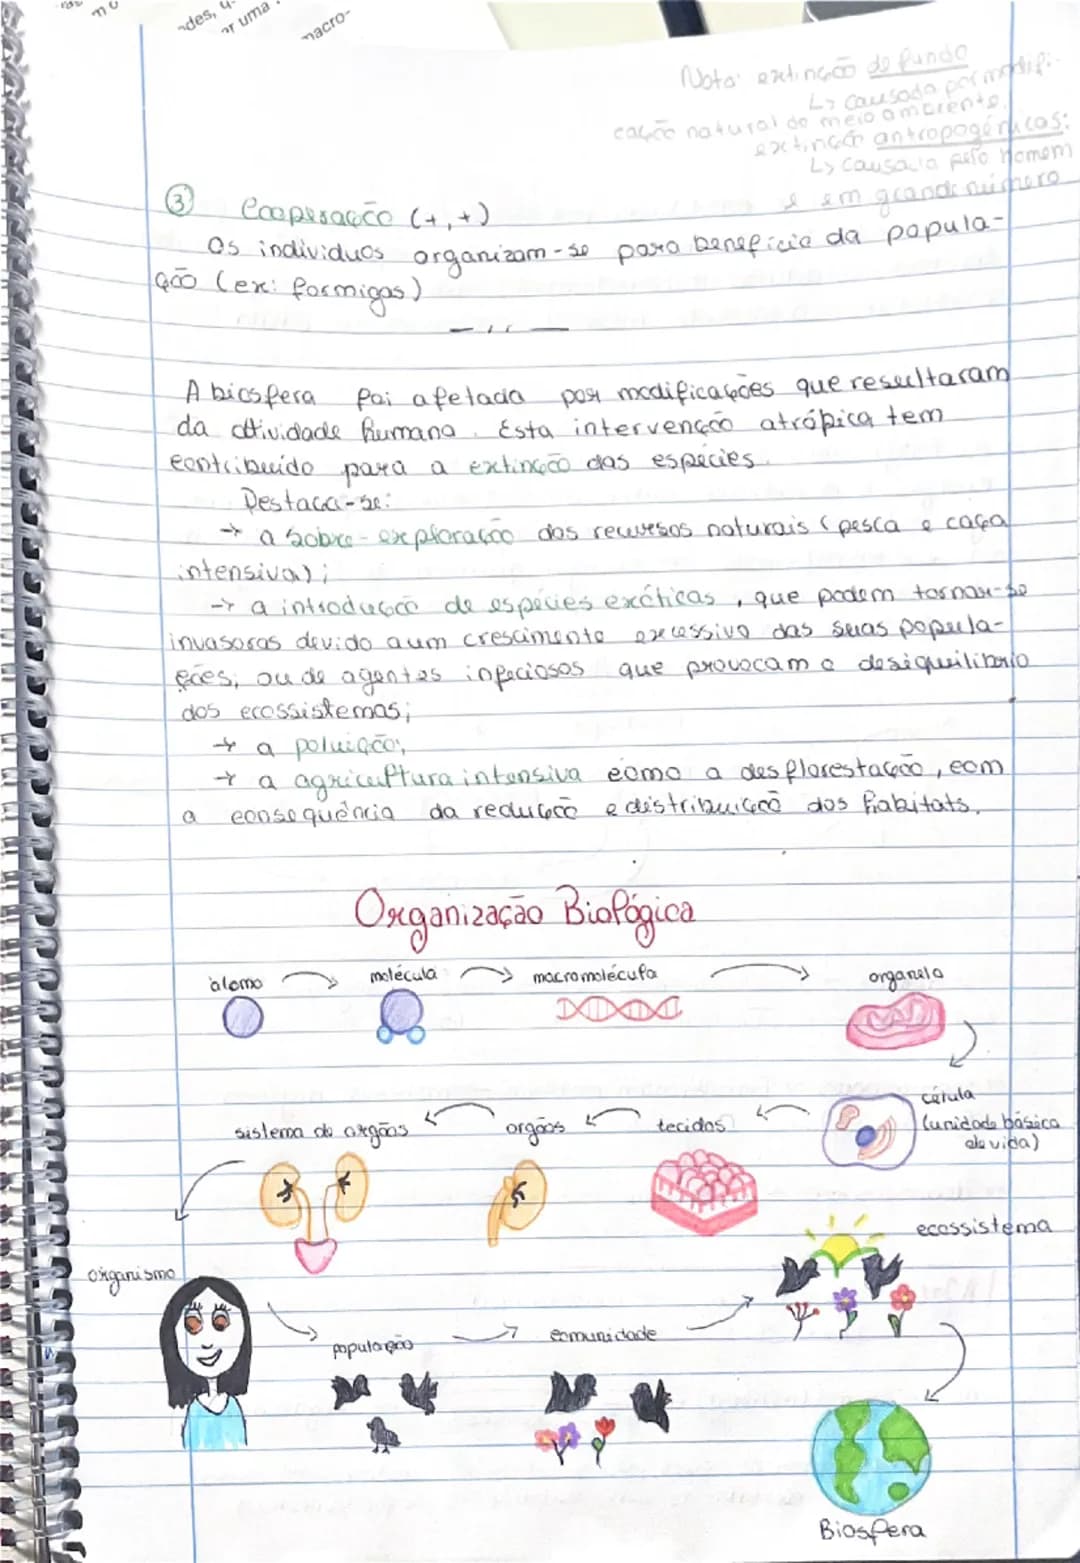 ndes, u-
ar uma
macro-
Nota: extinção de fundo
↳ causada por modifi-
cação natural do meio ambiente.
extinção antropogénicas:
↳ causada pelo homem
e em grande número
③ Cooperação (+,+)
Os individuos organizam-se para beneficio da popula-
ção (ex: formigas)
A biosfera foi afetada por modificações que resultaram
da atividade humana. Esta intervenção atrópica tem
contribuido para a extinção das espécies.
Destaca-se:
→ a sobre-exploração dos recursos naturais (pesca e caça
intensiva);
→ a introdução de espécies exóticas, que podem tornar-se
invasoras devido a um crescimento excessivo das suas popula-
ções; ou de agentes infeciosos que provocam o desiquilibrio
dos ecossistemas;
→ a poluição;
→ a agricultura intensiva como a desflorestação, com
a consequência da redução e distribuição dos habitats.
Organização Biológica
átomo → molécula → macromolécula → organelo
célula
(unidade básica
da vida)
tecidos
orgãos
sistema de orgãos
ecossistema
organismo
população → comunidade
Biosfera